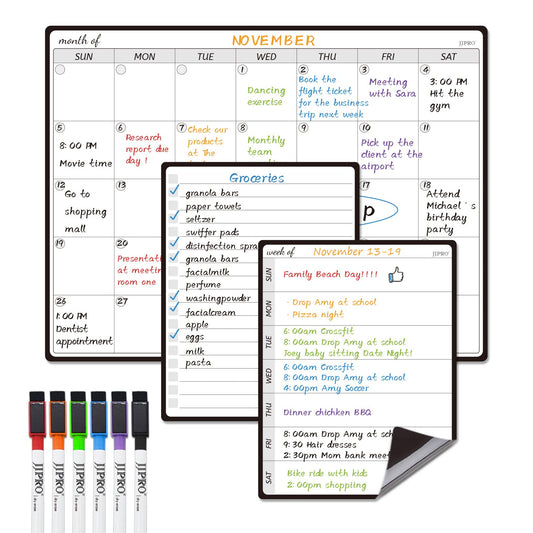 month of
NOVEMBER
JJPRO
SUN MON TUE WED THU FRI SAT
1
Dancing
exercise
2
Book the
flight ticket
for the business
trip next week
3
Meeting
with Sara
4
3:00 PM
Hit the
gym
5
8:00 PM
Movie time
6
Research
report due
day !
7
Check our
products
at The
8
Monthly
team
9
10
Pick up the
client at the
airport
11
12
Go to
shopping
mall
13
17
p
18
Attend
Michael's
birthday
party
19
20
Presentat
at meetin
room one
26
1:00 PM
Dentist
appointment
27
Groceries
granola bars
paper towels
seltzer
swiffer pads
disinfection spra
granola bars
facialmilk
perfume
washingpowder
facialcream
apple
eggs
milk
pasta
week of
November 13-19
JJPRO
SUN
Family Beach Day!!!!
MON
- Drop Amy at school
- Pizza night
TUE
6:00am Crossfit
8:00am Drop Amy at school
Joey baby sitting Date Night!
WED
6:00am Crossfit
8:00am Drop Amy at school
4:00pm Amy Soccer
THU
Dinner chichken BBQ
FRI
8:00am Drop Amy at sch
9:30 Hair dresses
2:30pm Mom bank meet
SAT
Bike ride with kids
2:00pm shopping
JJPRO
JJPRO
JJPRO
JJPRO
JJPRO
JJPRO